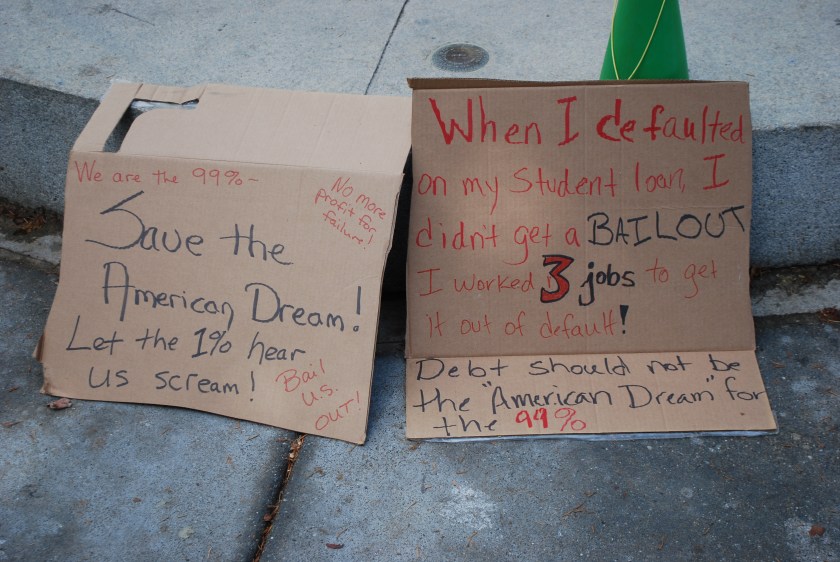 We are the 99% -
No more
profit for
failure!
Save the
American Dream!
Let the 1% hear
us scream!
Bail
U.S.
OUT!
When I defaulted
on my student loan, I
didn't get a BAILOUT
I worked 3 jobs to get
it out of default!
Debt should not be
the "American Dream" for
the 99%